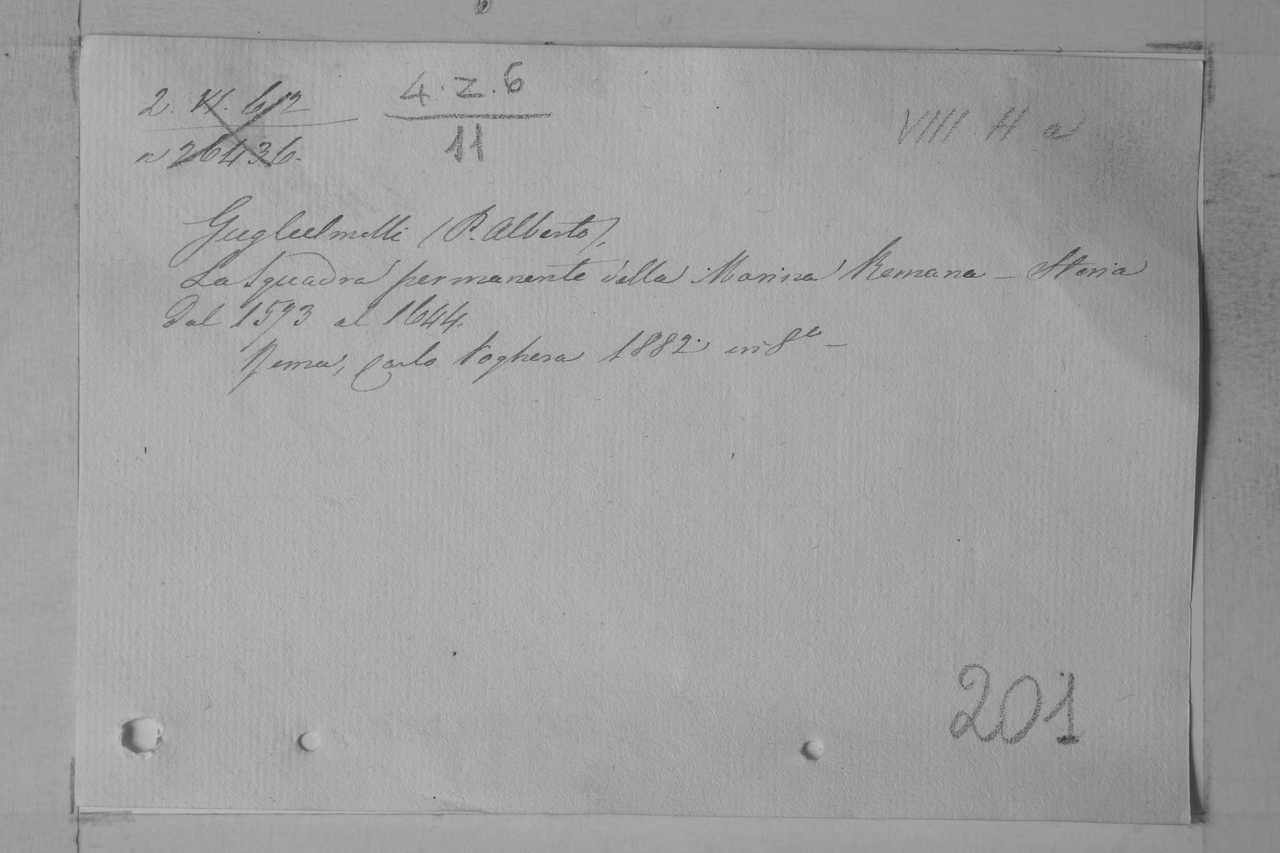 2. VI. 6/2
n 26436.
4.Z.6
11
VIII H a
Guglielmotti (P. Alberto).
La squadra permanente della Marina Romana – Storia
dal 1573 al 1644.
Roma, Carlo Voghera 1882 in 8º –
201